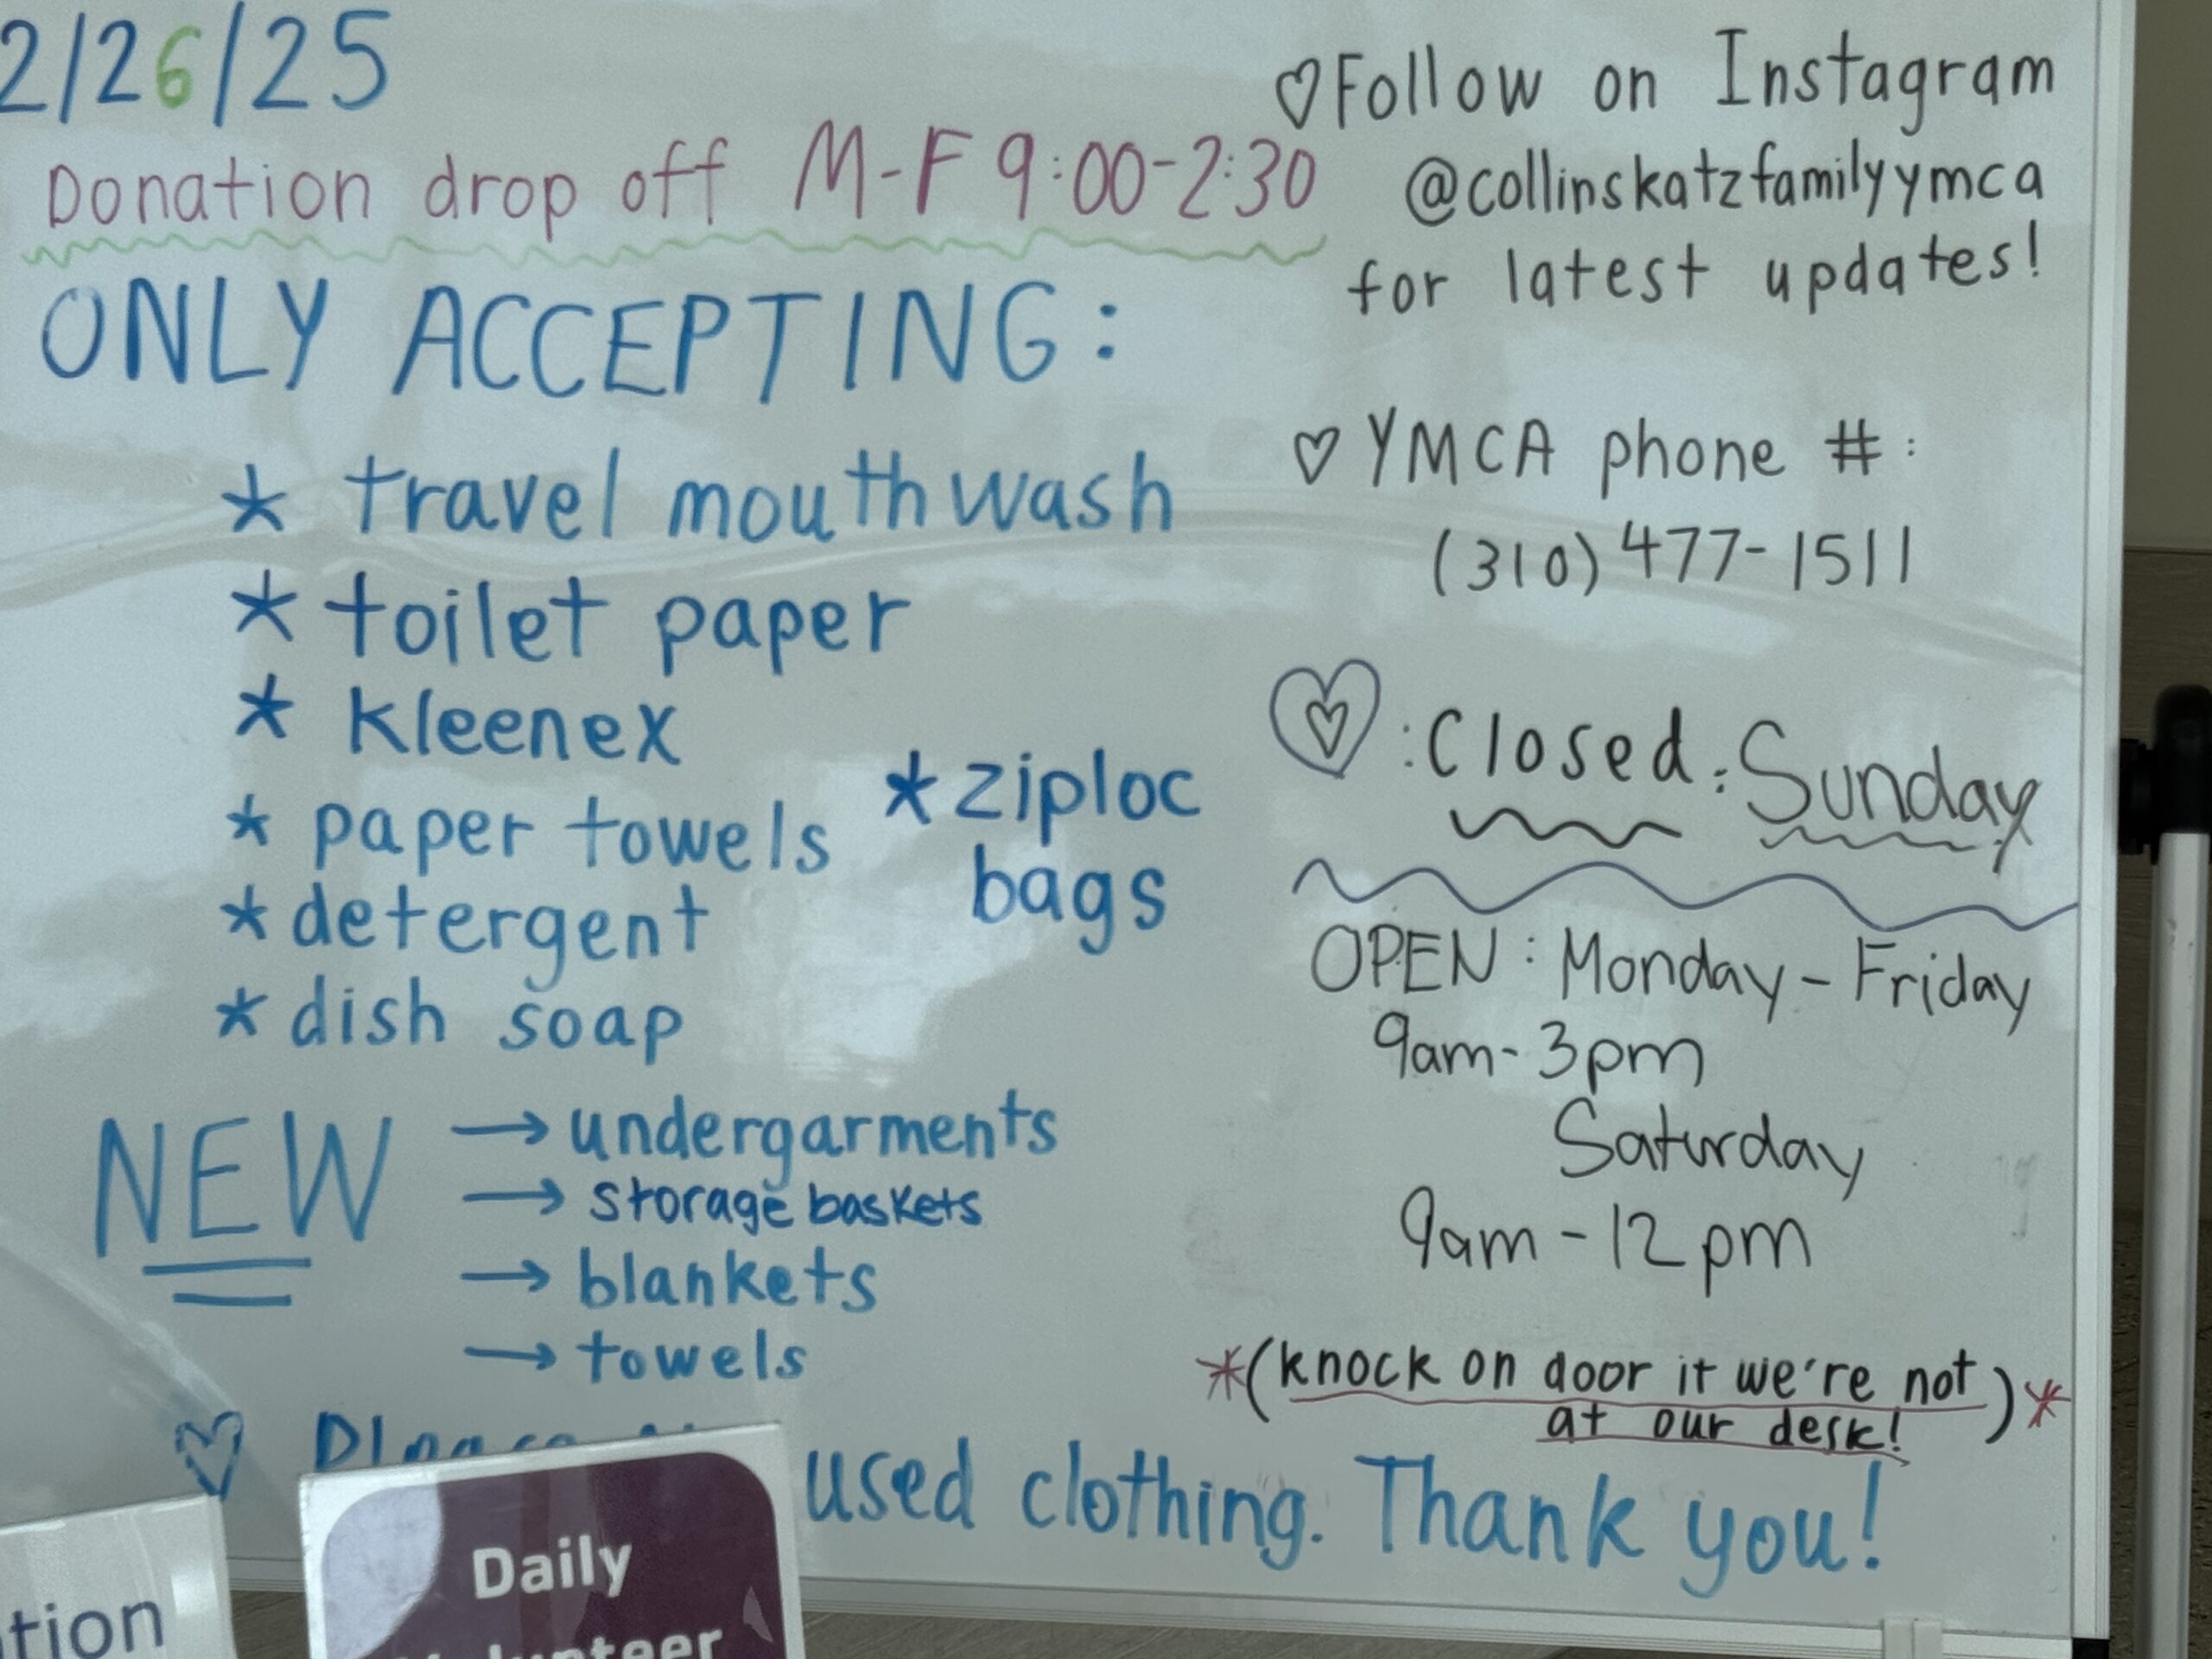 2/26/25
Donation drop off M-F 9:00-2:30
ONLY ACCEPTING:
* travel mouthwash
* toilet paper
* kleenex
* paper towels
* detergent
* dish soap
* ziploc
bags
NEW → undergarments
→ storage baskets
→ blankets
→ towels
♡ Please
used clothing. Thank you!
♡ Follow on Instagram
@collinskatzfamilyymca
for latest updates!
♡ YMCA phone #:
(310) 477-1511
♡ : Closed : Sunday
OPEN : Monday - Friday
9am - 3pm
Saturday
9am - 12 pm
*(knock on door if we're not
at our desk!)*
tion
Daily